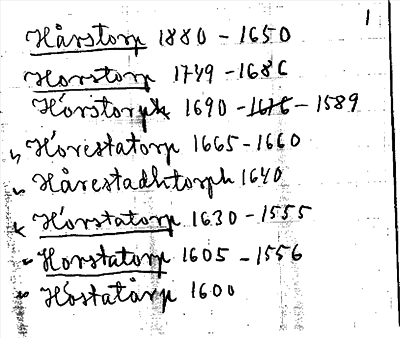 1
Hårstorp 1880 - 1650
Horstorp 1749 - 1686
Hórstorph 1690 - 1676 - 1589
" Hórestatorp 1665 - 1660
" Hårestadhtorph 1640
" Hórstatorp 1630 - 1555
" Horstatorp 1605 - 1556
" Hóstatårp 1600